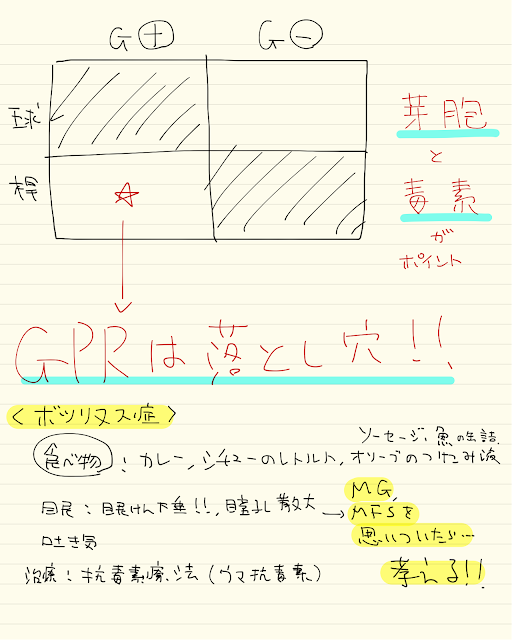 G⊕ G⊖
球
桿 ☆
芽胞
と
毒素
が
ポイント
GPRは落とし穴!!
<ボツリヌス症>
ソーセージ、魚の缶詰
食べ物:カレー,シチューのレトルト,オリーブのつけこみ液
眼:眼けん下垂!!,瞳孔散大→MG,
MFSを
思いついたら…
考える!!
吐き気
治療:抗毒素療法(ウマ抗毒素)